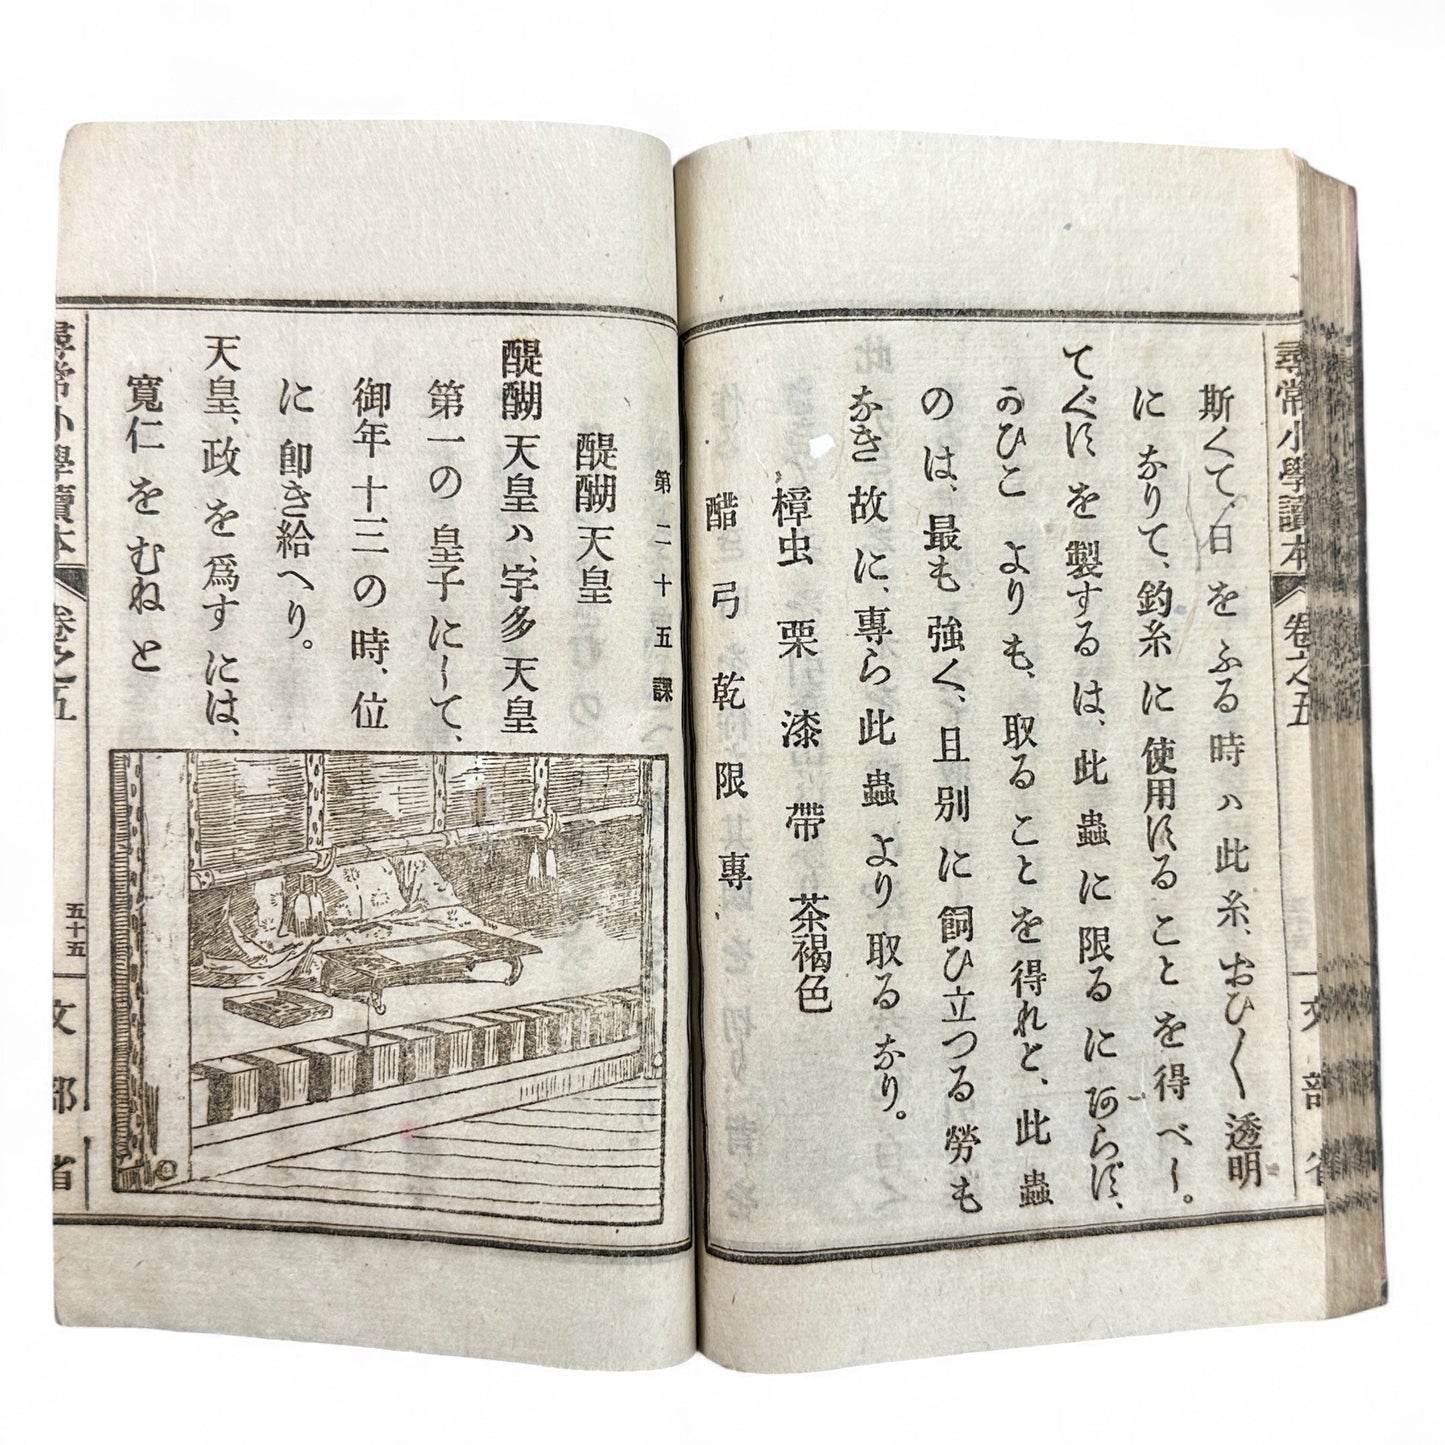 尋常小學讀本 卷之五 文部省
斯くて、日をふる時ハ此糸、おひ〱透明
になりて、釣糸に使用することを得べし。
てぐすを製するは、此蟲に限るにあらず、
かひこよりも、取ることを得れど、此蟲
のは、最も強く、且別に飼ひ立つる勞も
なき故に、專ら此蟲より取るなり。
樟虫 栗 漆 帶 茶褐色
醋 弓 乾 限 專
第二十五課
醍醐天皇
醍醐天皇ハ、宇多天皇
第一の皇子にして、
御年十三の時、位
に卽き給へり。
天皇、政を爲すには、
寬仁をむねと
尋常小學讀本 卷之五 五十五 文部省